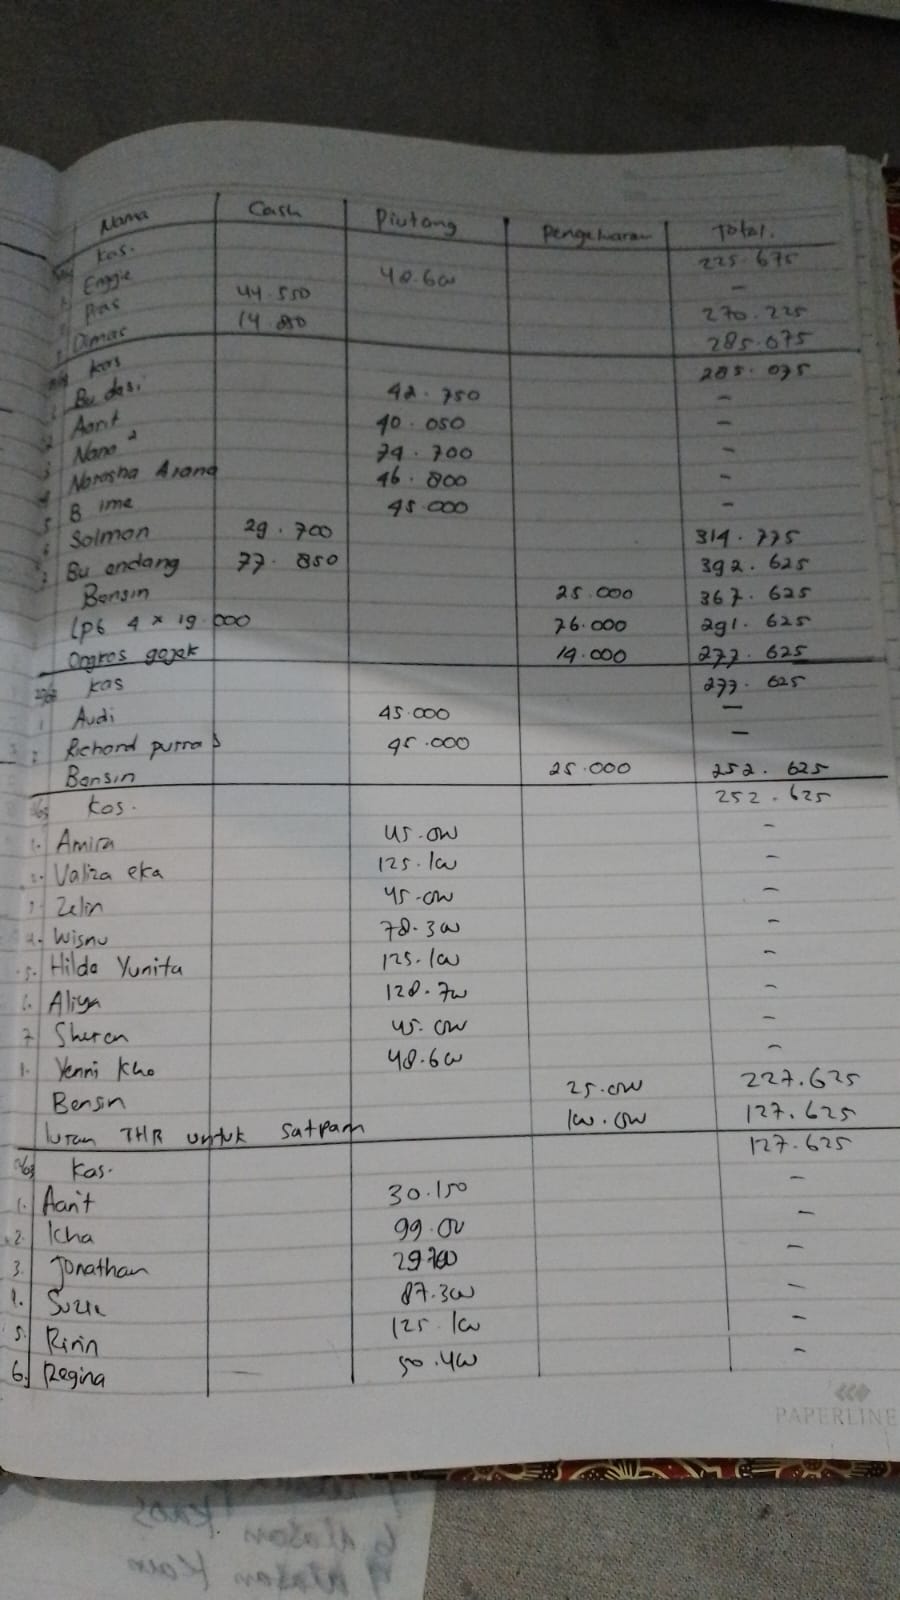 Nama Cash Piutang Pengeluaran Total.
kas. 225.675
Enggie 48.600 -
Pras 44.550 270.225
Dimas 14.850 285.075
kas 285.075
1 Bu desi 42.750 -
2 Aarit 40.050 -
3 Nana 2 74.700 -
4 Narasha Arana 46.800 -
5 B ime 45.000 -
6 Solmon 29.700 314.775
7 Bu endang 77.850 392.625
Bensin 25.000 367.625
LPG 4 x 19.000 76.000 291.625
Ongkos gojek 14.000 277.625
kas 277.625
1 Audi 45.000 -
2 Richard putra 45.000 -
Bensin 25.000 252.625
kas. 252.625
1. Amira 45.000 -
2. Valiza eka 125.100 -
3. Zelin 45.000 -
4. Wisnu 78.300 -
5. Hilda Yunita 125.100 -
6. Aliya 128.700 -
7 Sheren 45.000 -
Yenni Kho 48.600 -
Bensin 25.000 227.625
Iuran THR untuk Satpam 100.000 127.625
Kas. 127.625
1. Aarit 30.150 -
2. Icha 99.00 -
3. Jonathan 29700 -
4. Suzie 87.300 -
5. Ririn 125.100 -
6. Regina - 50.400 -
PAPERLINE